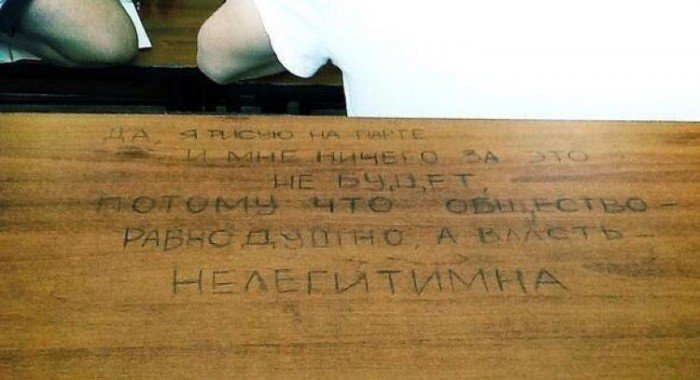 ДА, Я РИСУЮ НА ПАРТЕ
И МНЕ НИЧЕГО ЗА ЭТО
НЕ БУДЕТ,
ПОТОМУ ЧТО ОБЩЕСТВО-
РАВНОДУШНО, А ВЛАСТЬ-
НЕЛЕГИТИМНА